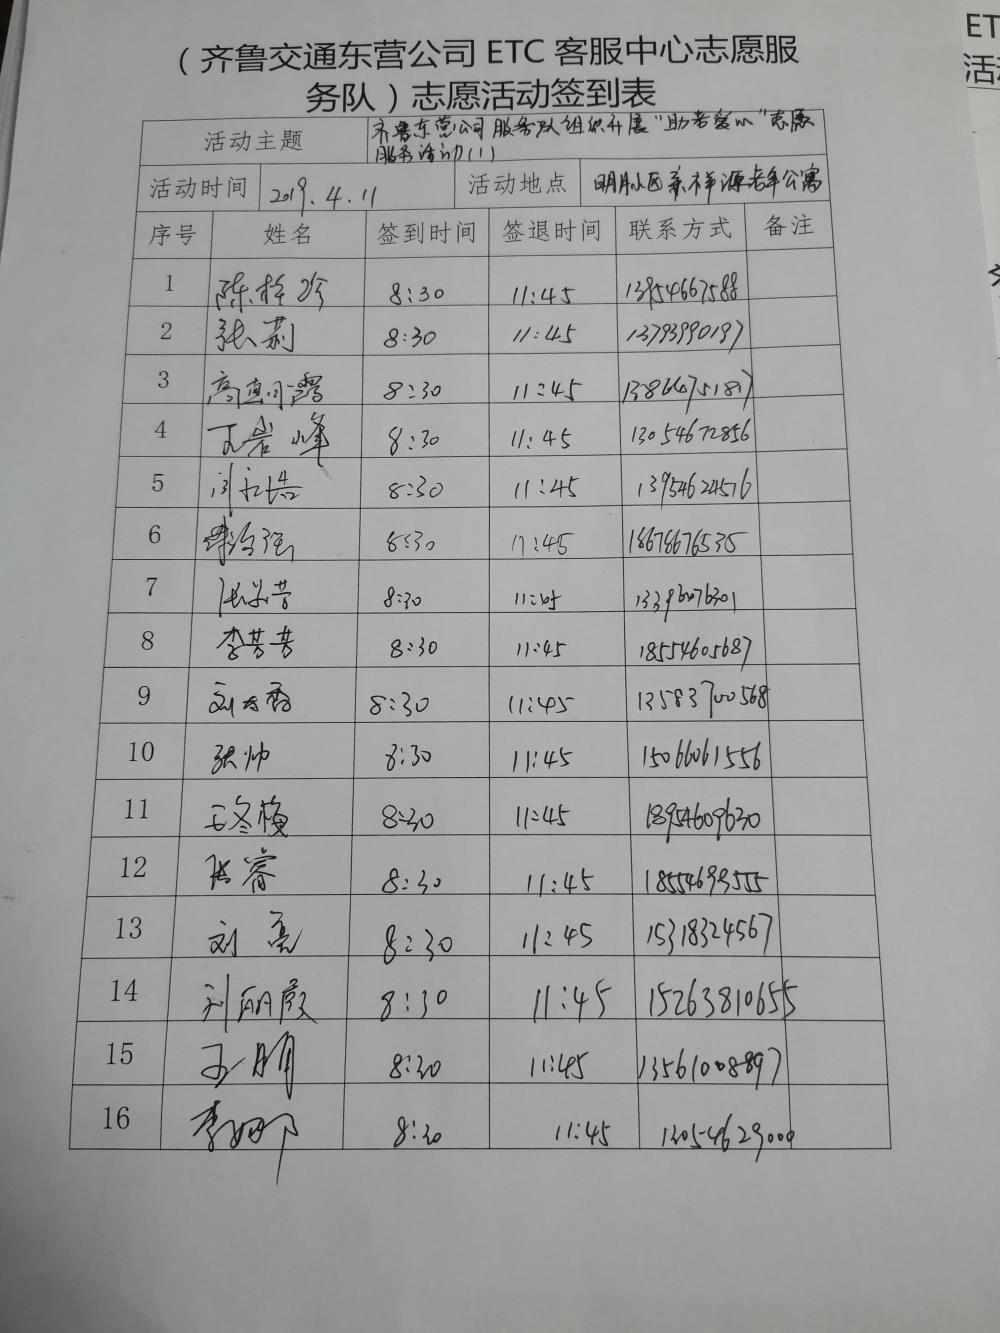 （齐鲁交通东营公司 ETC 客服中心志愿服
务队）志愿活动签到表
活动主题 齐鲁东营公司服务队组织开展“助老爱心”志愿
服务活动(1)
活动时间 2019.4.11 活动地点 明月小区 祥源老年公寓
序号 姓名 签到时间 签退时间 联系方式 备注
1 陈 8:30 11:45 13954667588
2 张莉 8:30 11:45 13793990197
3 高 露 8:30 11:45
4 岩峰 8:30 11:45 13054672856
5 8:30 11:45 13954624516
6 8:30 11:45 18678676535
7 8:30 11:45 13396076301
8 李芳芳 8:30 11:45 18554605687
9 刘 8:30 11:45 13583700568
10 张帅 8:30 11:45 15066061556
11 王冬梅 8:30 11:45 18954609630
12 张睿 8:30 11:45 18554693555
13 刘亮 8:30 11:45 15318324567
14 刘丽霞 8:30 11:45 15263810655
15 王明 8:30 11:45 13561008897
16 李娜 8:30 11:45 13054629000
ET
活动